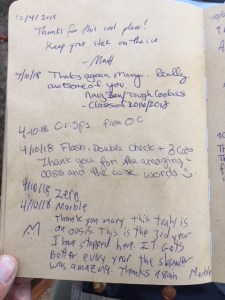 Thanks for this cool place!
Keep your stick on the ice
-Matt
7/10/18 Thanks again Mary. Really
awesome of you.
Navy Ben/Tough Cookies
-Class of 2016/2018
4-10-18 Crisps from OC
4/10/18 Flash, Double Check + 3
Thank you for the amazing
oasis and the wise words
4/10/18 Zen
4/10/18 Marble
Thank you mary this truly is
an oasis. This is the 3rd year
I have stopped here. IT Gets
Better every year the shower
was amazing. Thanks again Marble